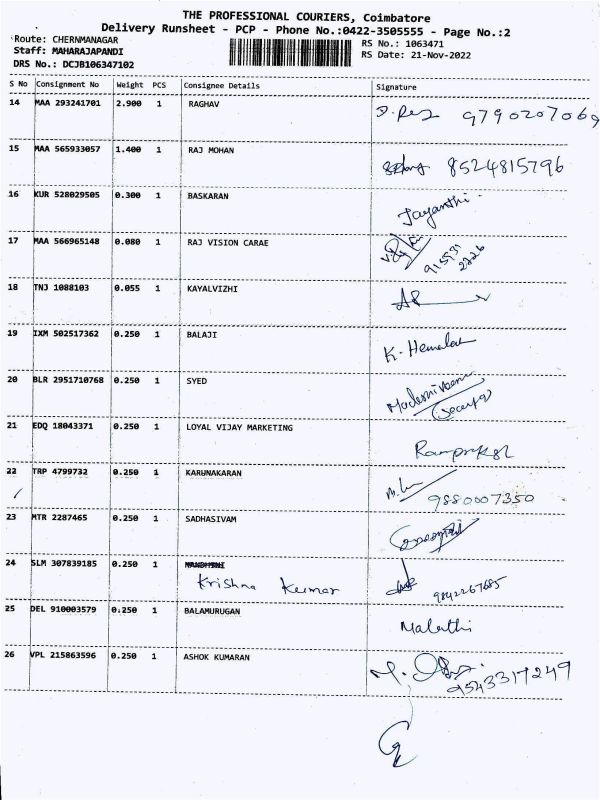 THE PROFESSIONAL COURIERS, Coimbatore
Delivery Runsheet - PCP - Phone No.:0422-3505555 - Page No.:2
Route: CHERNMANAGAR
RS No.: 1063471
Staff: MAHARAJAPANDI
RS Date: 21-Nov-2022
DRS No.: DCJB106347102
S No Consignment No Weight PCS Consignee Details Signature
14 MAA 293241701 2.900 1 RAGHAV 9790207069
15 MAA 565933057 1.400 1 RAJ MOHAN 8524815796
16 KUR 528029505 0.300 1 BASKARAN Jayanthi.
17 MAA 566965148 0.080 1 RAJ VISION CARAE 915931
2226
18 TNJ 1088103 0.055 1 KAYALVIZHI
19 IXM 502517362 0.250 1 BALAJI K. Hemalat
20 BLR 2951710768 0.250 1 SYED
21 EDQ 18043371 0.250 1 LOYAL VIJAY MARKETING
22 TRP 4799732 0.250 1 KARUNAKARAN 9880007350
23 MTR 2287465 0.250 1 SADHASIVAM
24 SLM 307839185 0.250 1
Krishna Kumar 9842267685
25 DEL 910003579 0.250 1 BALAMURUGAN Malathi
26 VPL 215863596 0.250 1 ASHOK KUMARAN 9543317249